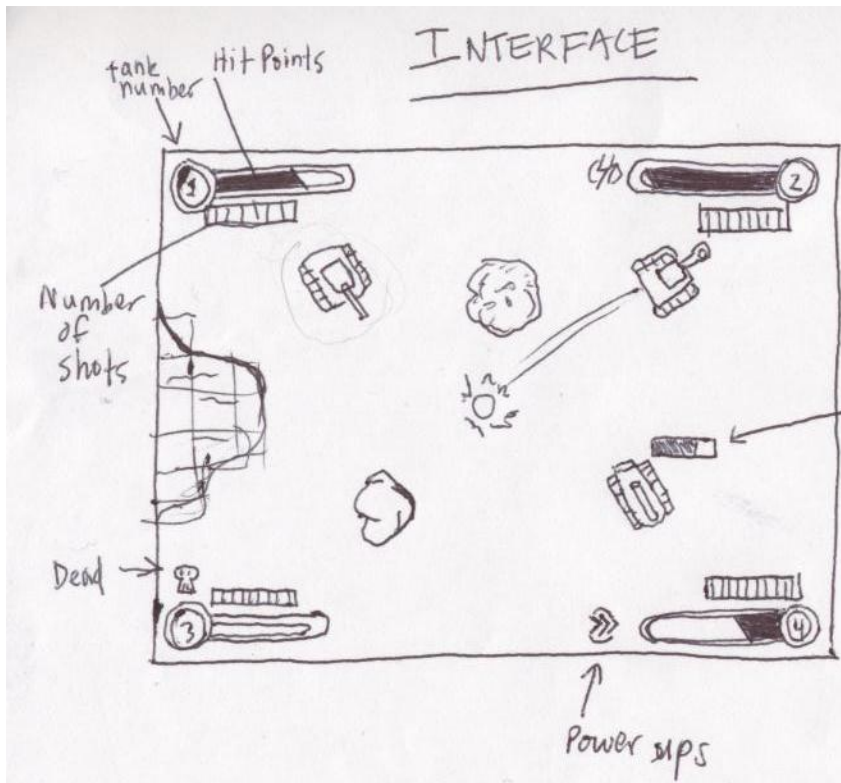 INTERFACE
tank
number
Hit Points
1
2
Number
of
shots
Dead
3
4
Power ups